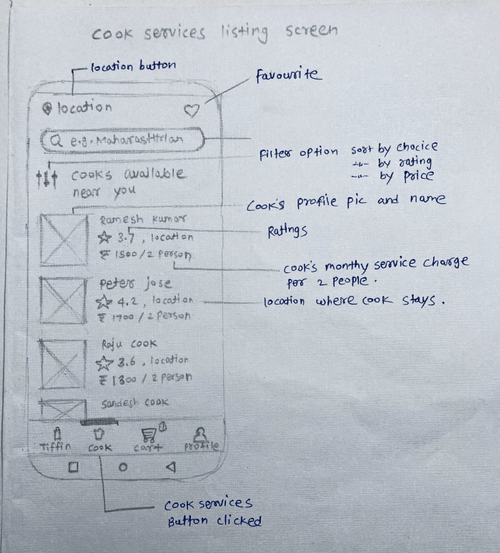 cook services listing screen
location button
Favourite
location
e.g. Maharashtrian
Filter option sort by choice
-"- by rating
-"- by Price
COOKS available
near you
Cook's profile pic and name
Ramesh kumar
3.7 , location
₹ 1500 / 2 Person
Ratings
cook's monthy service charge
per 2 People .
Peter jose
4.2 , location
₹ 1700 / 2 Person
location where cook stays .
Raju cook
3.6 , location
₹ 1300 / 2 Person
Sandesh cook
Tiffin
cook
cart
Profile
cook services
Button clicked